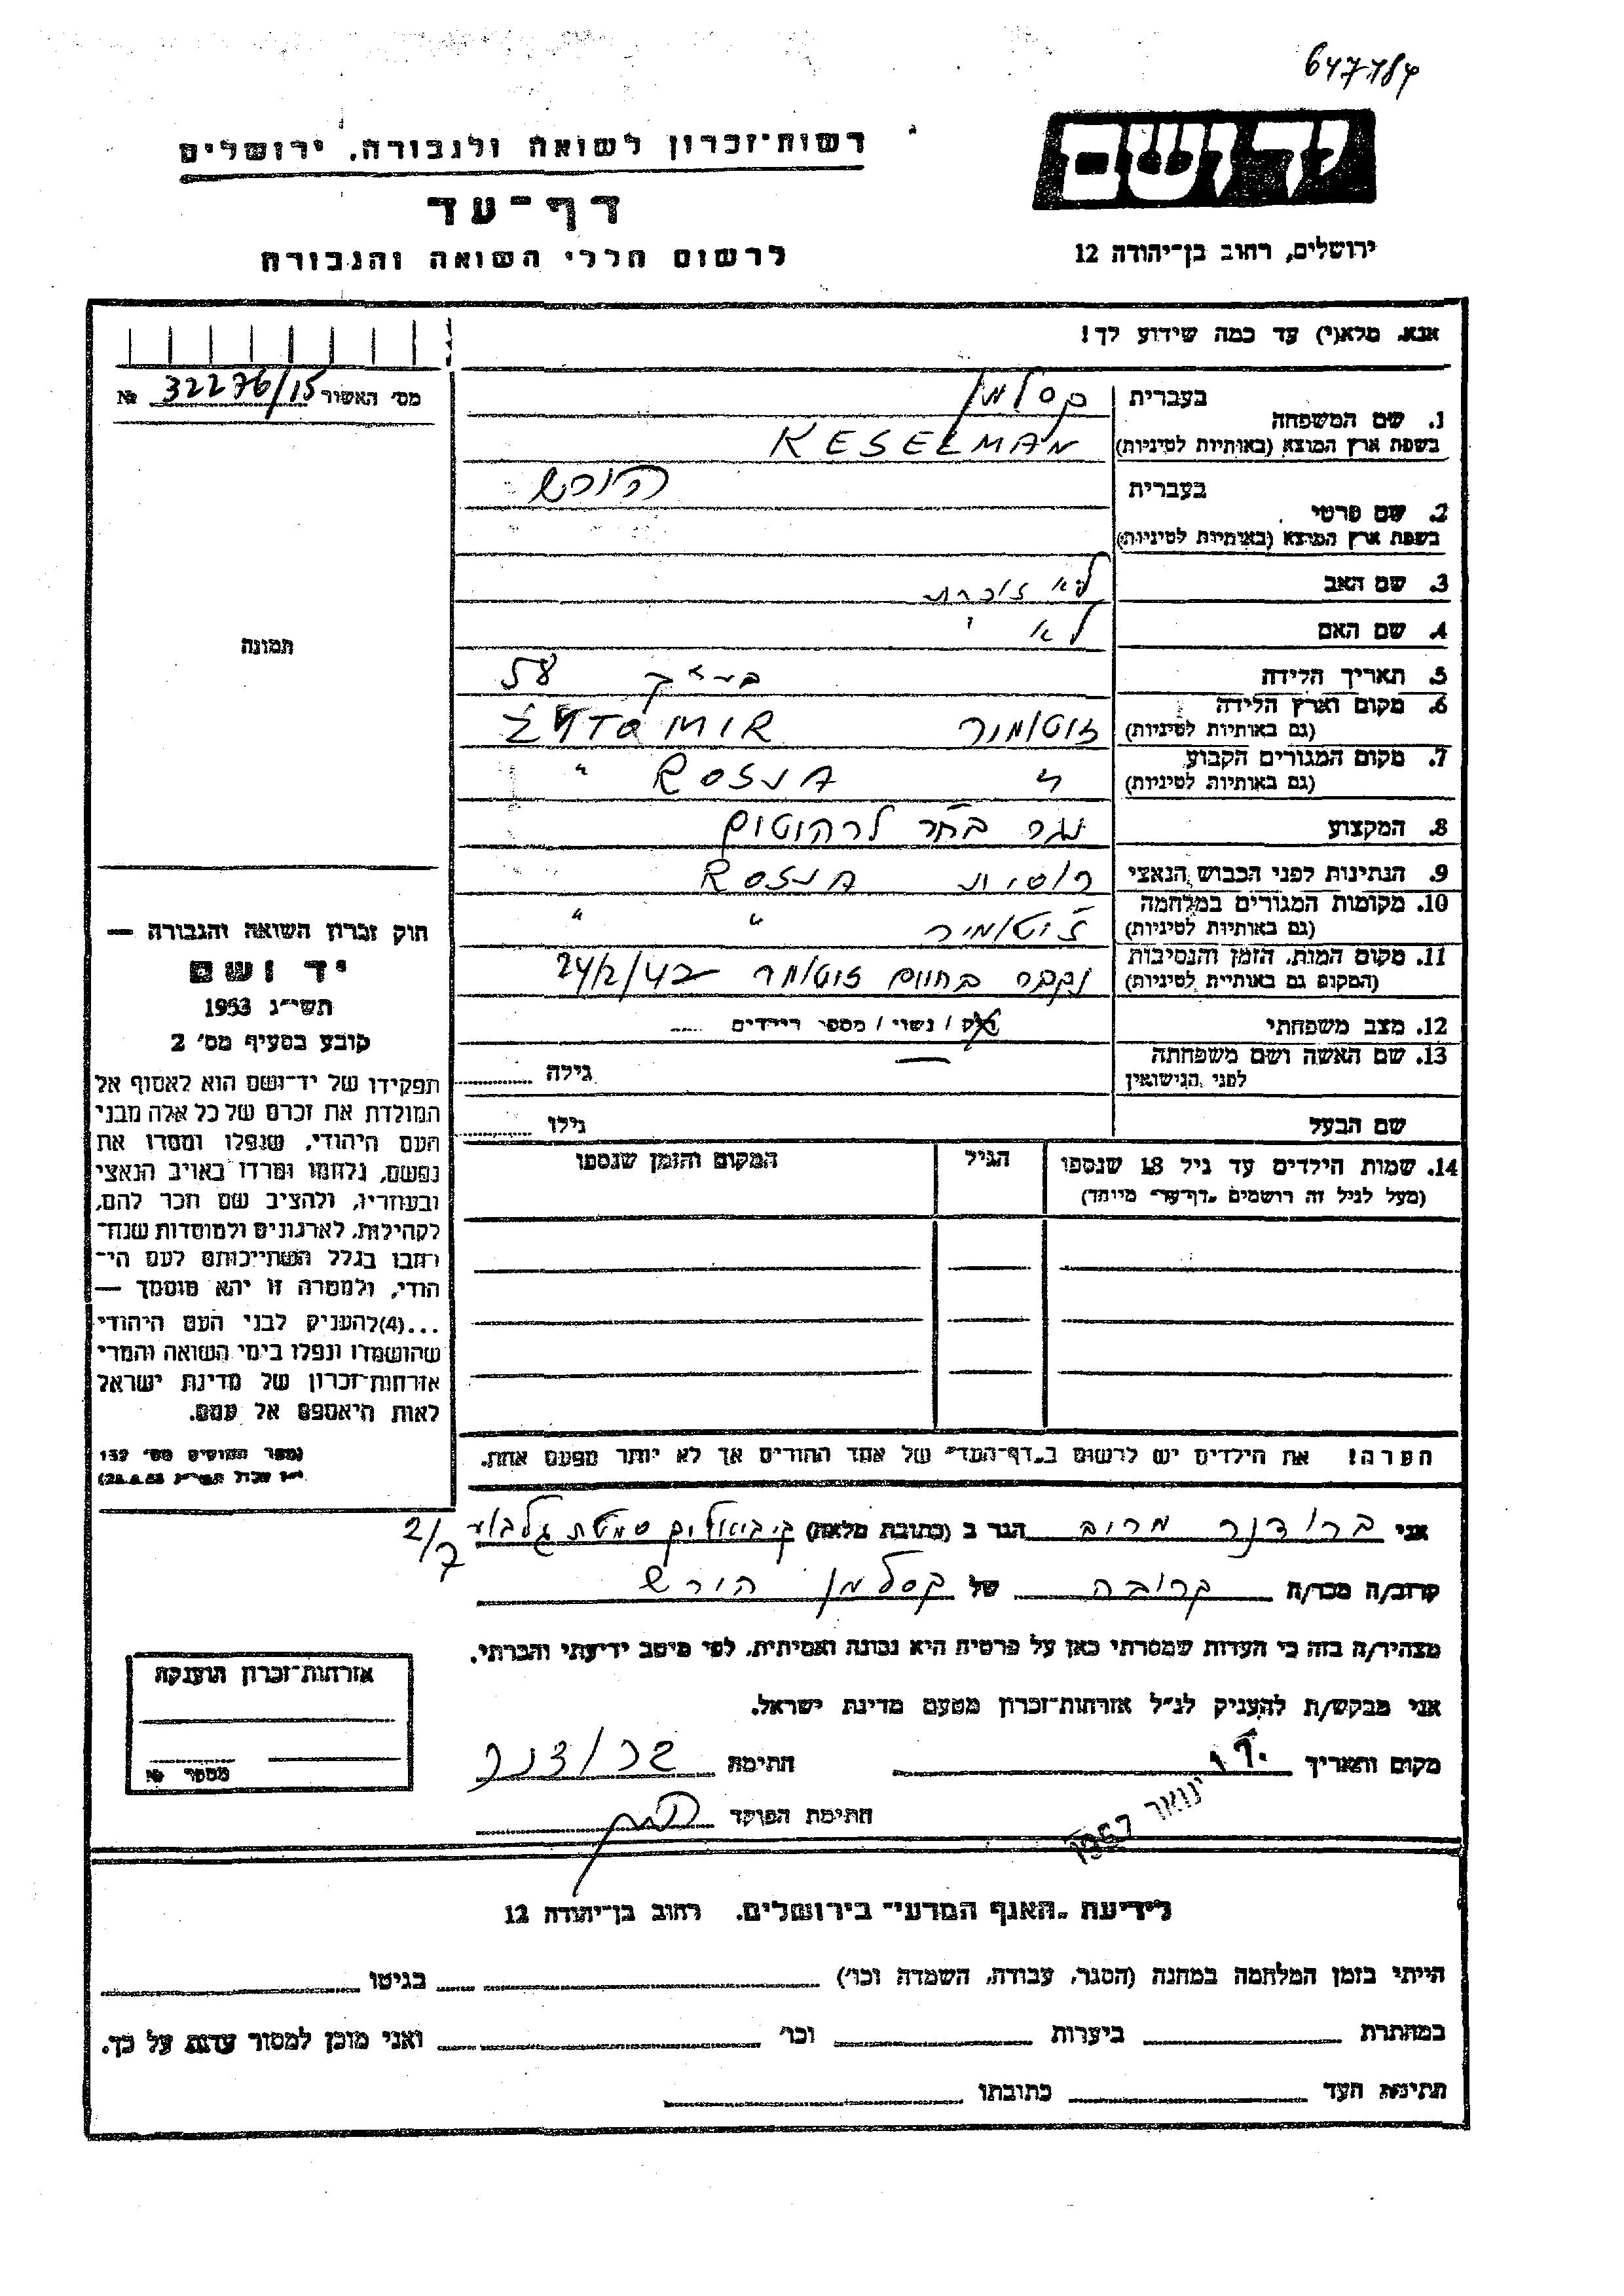 647184
יד ושם
רשות־זכרון לשואה ולגבורה, ירושלים
דף־עד
לרשום חללי השואה והגבורה
ירושלים, רחוב בן־יהודה 12
אנא, מלא(י) עד כמה שידוע לך!
מס' האשור 32276/15 №
תמונה
1. שם המשפחה
בעברית קסלמן
בשפת ארץ המוצא (באותיות לטיניות) KESELMAN
2. שם פרטי
בעברית הירש
בשפת ארץ המוצא (באותיות לטיניות)
3. שם האב לא זוכרת
4. שם האם לא
5. תאריך הלידה 58
6. מקום וארץ הלידה זיטומיר ŻYTOMIR
(גם באותיות לטיניות)
7. מקום המגורים הקבוע " ROSJA "
(גם באותיות לטיניות)
8. המקצוע נגר לרהיטים
9. הנתינות לפני הכבוש הנאצי רוסית ROSJA
10. מקומות המגורים במלחמה זיטומיר " "
(גם באותיות לטיניות)
11. מקום המות, הזמן והנסיבות זיטומיר 24/2/42
(המקום גם באותיות לטיניות)
12. מצב משפחתי רוק / נשוי / מספר הילדים
13. שם האשה ושם משפחתה — גילה
לפני הנישואין
שם הבעל גילו
14. שמות הילדים עד גיל 18 שנספו הגיל המקום והזמן שנספו
(מעל לגיל זה רושמים "דף־עד" מיוחד)
חוק זכרון השואה והגבורה —
יד ושם
תשי"ג 1953
קובע בסעיף מס' 2
תפקידו של יד־ושם הוא לאסוף אל
המולדת את זכרם של כל אלה מבני
העם היהודי, שנפלו ומסרו את
נפשם, נלחמו ומרדו באויב הנאצי
ובעוזריו, ולהציב שם וזכר להם,
לקהילות, לארגונים ולמוסדות שנח־
רבו בגלל השתייכותם לעם הי־
הודי, ולמטרה זו יהא מוסמך —
...(4) להעניק לבני העם היהודי
שהושמדו ונפלו בימי השואה והמרי
אזרחות־זכרון של מדינת ישראל
לאות היאספם אל עמם.
(ספר החוקים מס' 132
הערה! את הילדים יש לרשום ב"דף־העד" של אחד ההורים אך לא יותר מפעם אחת.
אני ברודנר מרים הגר ב (כתובת מלאה) סמטת גלבוע 2/7
קרוב/ה מכר/ה קרובה של קסלמן הירש
מצהיר/ה בזה כי העדות שמסרתי כאן על פרטיה היא נכונה ואמיתית, לפי מיטב ידיעתי והכרתי.
אני מבקש/ת להעניק לנ"ל אזרחות־זכרון מטעם מדינת ישראל.
מקום ותאריך ינואר 1957 חתימה ברודנר
חתימת הפוקד
אזרחות־זכרון הוענקה
מספר №
לידיעת "האגף המדעי" בירושלים, רחוב בן־יהודה 12
הייתי בזמן המלחמה במחנה (הסגר, עבודה, השמדה וכו') בגיטו
במחתרת ביערות וכו' ואני מוכן למסור עדות על כך.
חתימת העד כתובתו